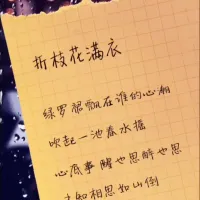 折枝花满衣
绿罗裙飘在谁的心湖
吹起一池春水摇
心底事醒也思醉也思
才知相思如山倒